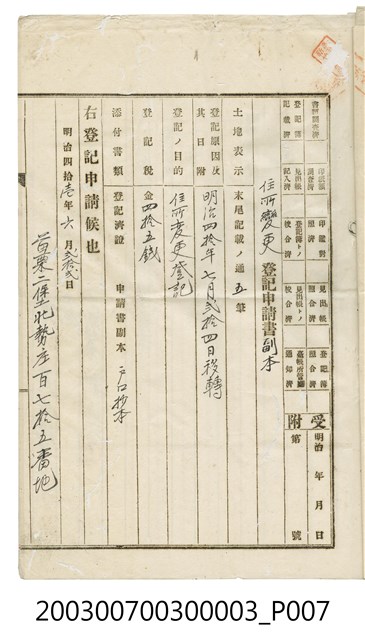 書類調査濟
登記簿記載濟
印鑑簿調査濟
見出帳記入濟
印鑑對照濟
登記簿トノ校合濟
見出帳照合濟
見出帳トノ校合濟
登記簿照合濟
臺帳所管廳通知濟
受附
明治 年 月 日
第 號
住所變更登記申請書副本
土地表示 末尾記載ノ通五筆
登記原因及其日附 明治四拾年七月貳拾四日移轉
登記ノ目的 住所変更登記
登記税 金四拾五錢
添付書類 登記濟證 申請書副本 戸口抄本
右登記申請候也
明治四拾壱年六月貳拾弐日
苗栗二堡北勢庄百七拾五番地
200300700300003_P007